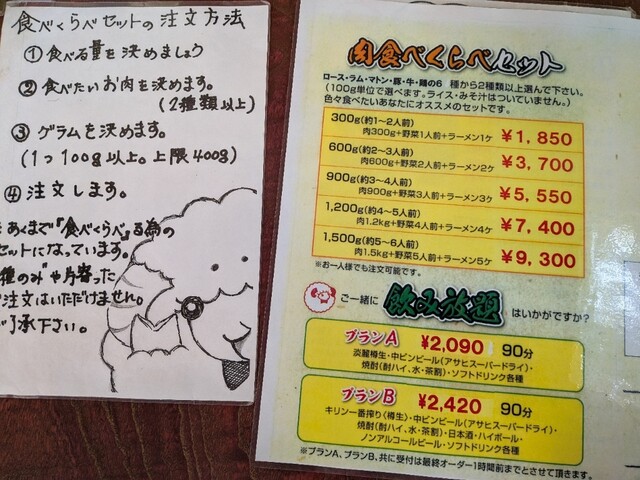 食べくらべセットの注文方法
①食べる量を決めましょう
②食べたいお肉を決めます。
(2種類以上)
③グラムを決めます。
(1つ100g以上。上限400g)
④注文します。
あくまで『食べくらべ』る為の
セットになっています。
種のみ"や片寄った
注文はいただけません。
了承下さい。
肉食べくらべセット
ロース・ラム・マトン・豚・牛・鶏の6 種から2種類以上選んで下さい。
(100g単位で選べます。ライス・みそ汁はついていません。)
色々食べたいあなたにオススメのセットです。
300g(約1〜2人前)
肉300g+野菜1人前+ラーメン1ケ ¥1,850
600g(約2〜3人前)
肉600g+野菜2人前+ラーメン2ケ ¥3,700
900g(約3〜4人前)
肉900g+野菜3人前+ラーメン3ケ ¥5,550
1,200g(約4〜5人前)
肉1.2kg+野菜4人前+ラーメン4ケ ¥7,400
1,500g(約5〜6人前)
肉1.5kg+野菜5人前+ラーメン5ケ ¥9,300
※お一人様でも注文可能です。
ご一緒に 飲み放題 はいかがですか?
プランA ¥2,090 90分
淡麗樽生・中ビンビール(アサヒスーパードライ)・
焼酎(酎ハイ、水・茶割)・ソフトドリンク各種
プランB ¥2,420 90分
キリン一番搾り(樽生)・中ビンビール(アサヒスーパードライ)・
焼酎(酎ハイ、水・茶割)・日本酒・ハイボール・
ノンアルコールビール・ソフトドリンク各種
※プランA、プランB、共に受付は最終オーダー1時間前までとさせて頂きます。